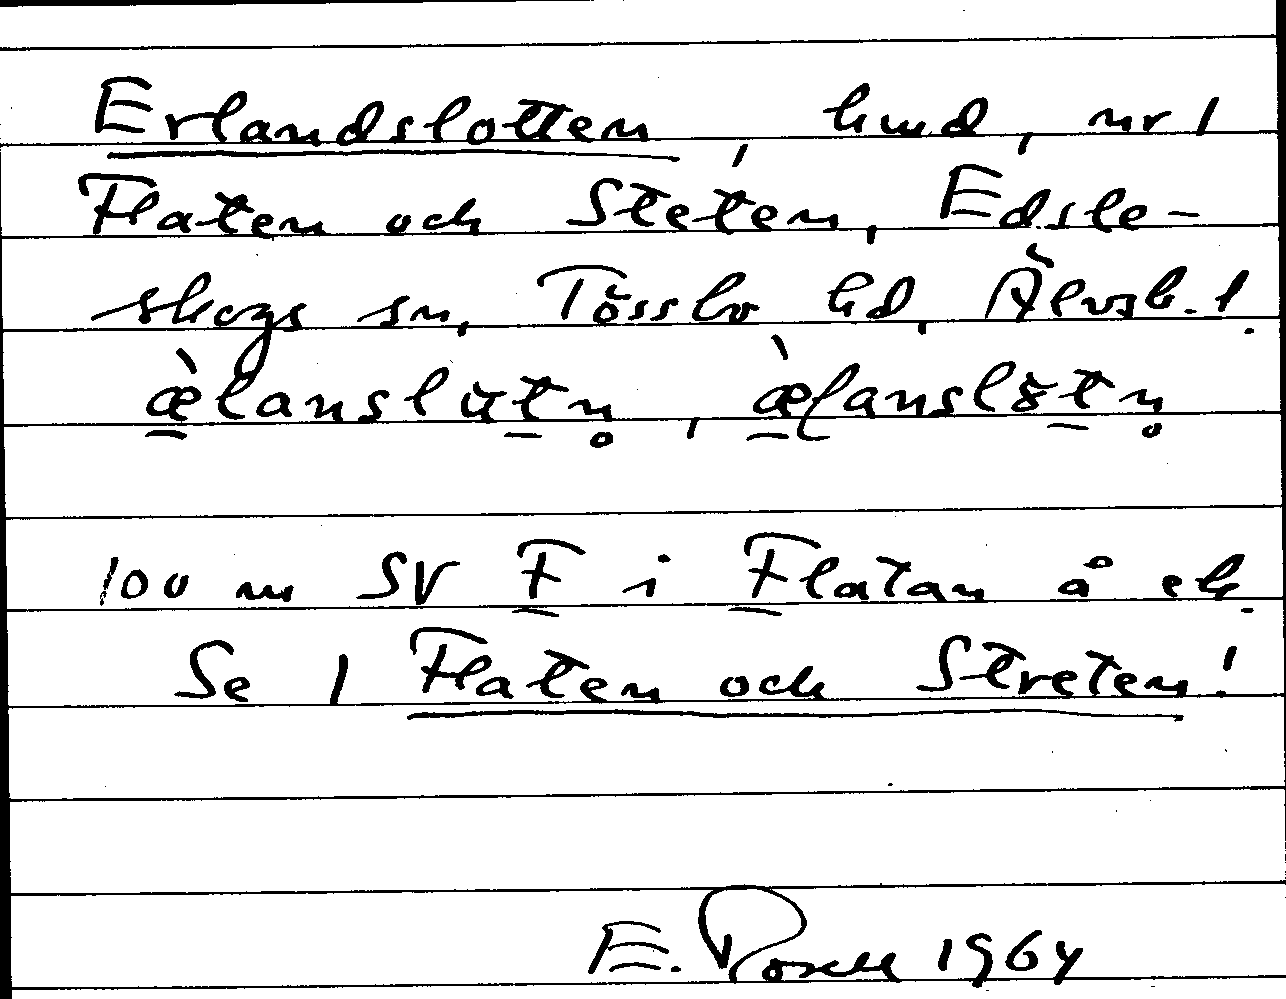 Erlandslotten, hmd, nr 1
Flaten och Steten, Edsle-
skogs sn, Tössbo hd, Älvsb. l.
æ̀lanslütn̥, æ̀lanslötn̥
100 m SV F i Flatan å ek.
Se 1 Flaten och Streten!
E. Rosell 1964